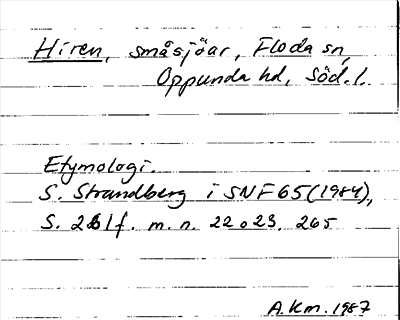 Hiren, småsjöar, Floda sn,
Oppunda hd, Söd.l.
Etymologi.
S. Strandberg i SNF 65 (1984),
S. 261f. m. n. 22 o 23. 265
A.Km. 1987